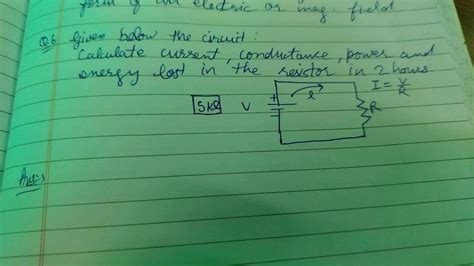 form of an electric or mag. field
Q6. Given below the circuit:
Calculate current, conductance, power and
energy lost in the resistor in 2 hours.
I = V/R
5kΩ V + i R
Ans: